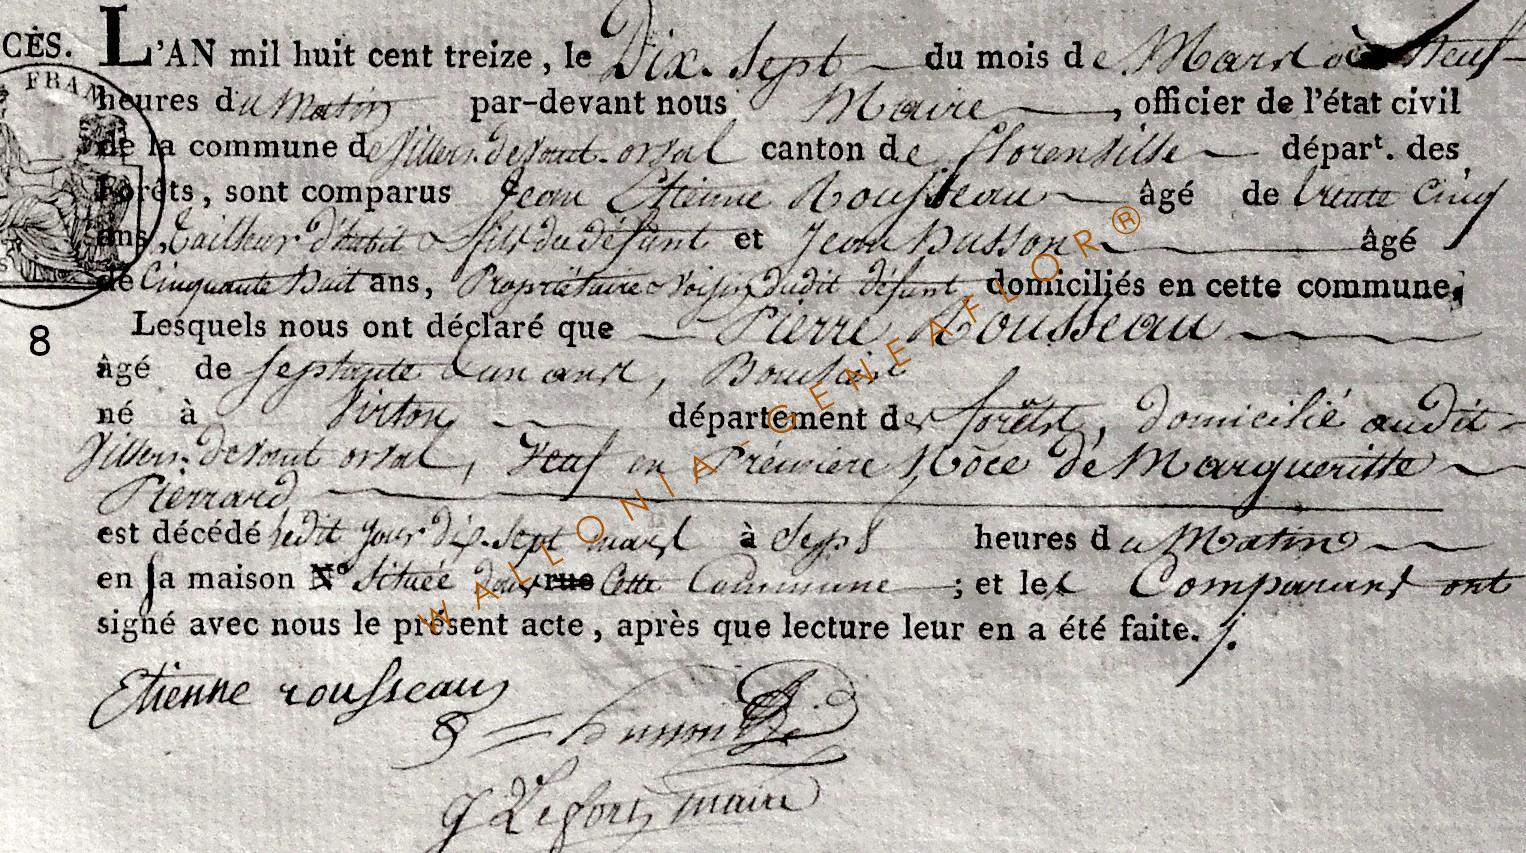 CÈS. L'AN mil huit cent treize, le Dix. Sept du mois de Mars à Neuf
FRAN heures du Matin par-devant nous Maire, officier de l'état civil
de la commune de Villers. devant. orval canton de florenville départ. des
Forêts, sont comparus Jean Etienne Rousseau âgé de trente Cinq
ans, tailleur d'habit & fils du défunt et Jean Husson âgé
de Cinquante huit ans, Propriétaire & Voisin dudit défunt, domiciliés en cette commune;
8 Lesquels nous ont déclaré que Pierre Rousseau
âgé de septante & un ans,
né à Virton département des forêts, domicilié audit
Villers. devant orval, Veuf en Première Nôce de Margueritte
Pierrard
est décédé ledit jour dix. sept mars à Sept heures du Matin
en sa maison N° située dans rue Cette Commune; et les Comparans ont
signé avec nous le présent acte, après que lecture leur en a été faite. /.
Etienne rousseau
husson
g Lefort, maire
WALLONIA-GENEAFLOR®